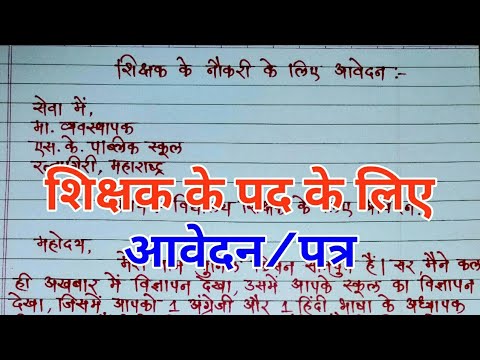 शिक्षक के नौकरी के लिए आवेदन :-
सेवा में,
मा. व्यवस्थापक
एस. के. पाब्लिक स्कूल
रत्नागिरी, महाराष्ट्र
शिक्षक के पद के लिए
आवेदन/पत्र
महोदय,
है। सर, मैने कल
ही अखबार में विज्ञापन देखा, उसमें आपके स्कूल का विज्ञापन
देखा, जिसमें आपको 1 अंग्रेजी और 1 हिंदी भाषा के अध्यापक